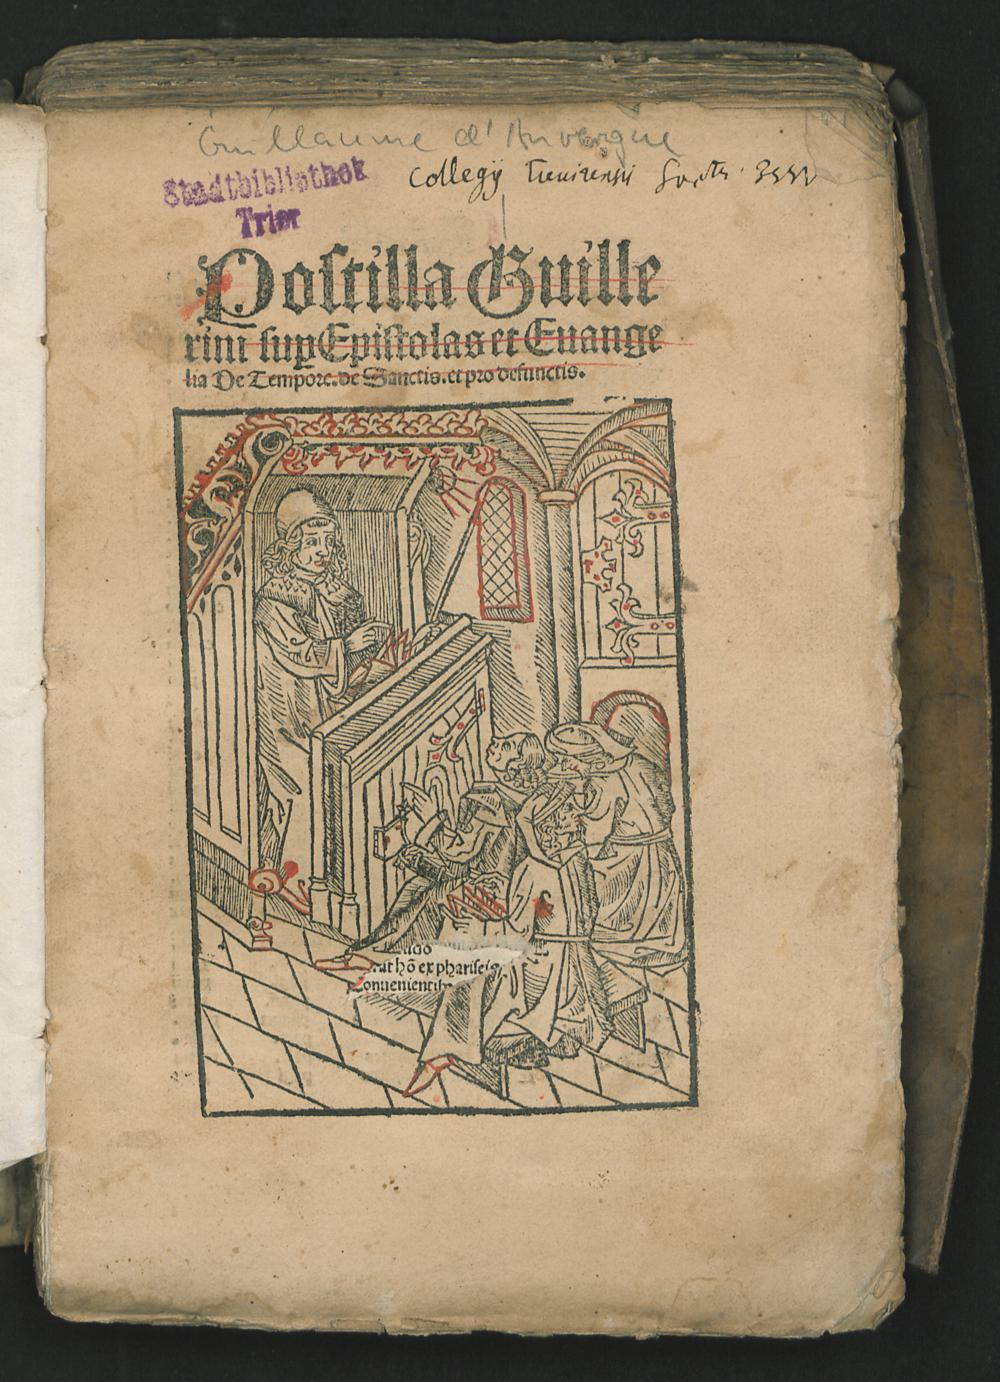 Guillaume d'Auvergne
Stadtbibliothek
Trier
Collegij Treuirensis
Postilla Guille
rini sup Epistolas et Euange
lia De Tempore. de Sanctis. et pro defunctis.
hō ex phariseis